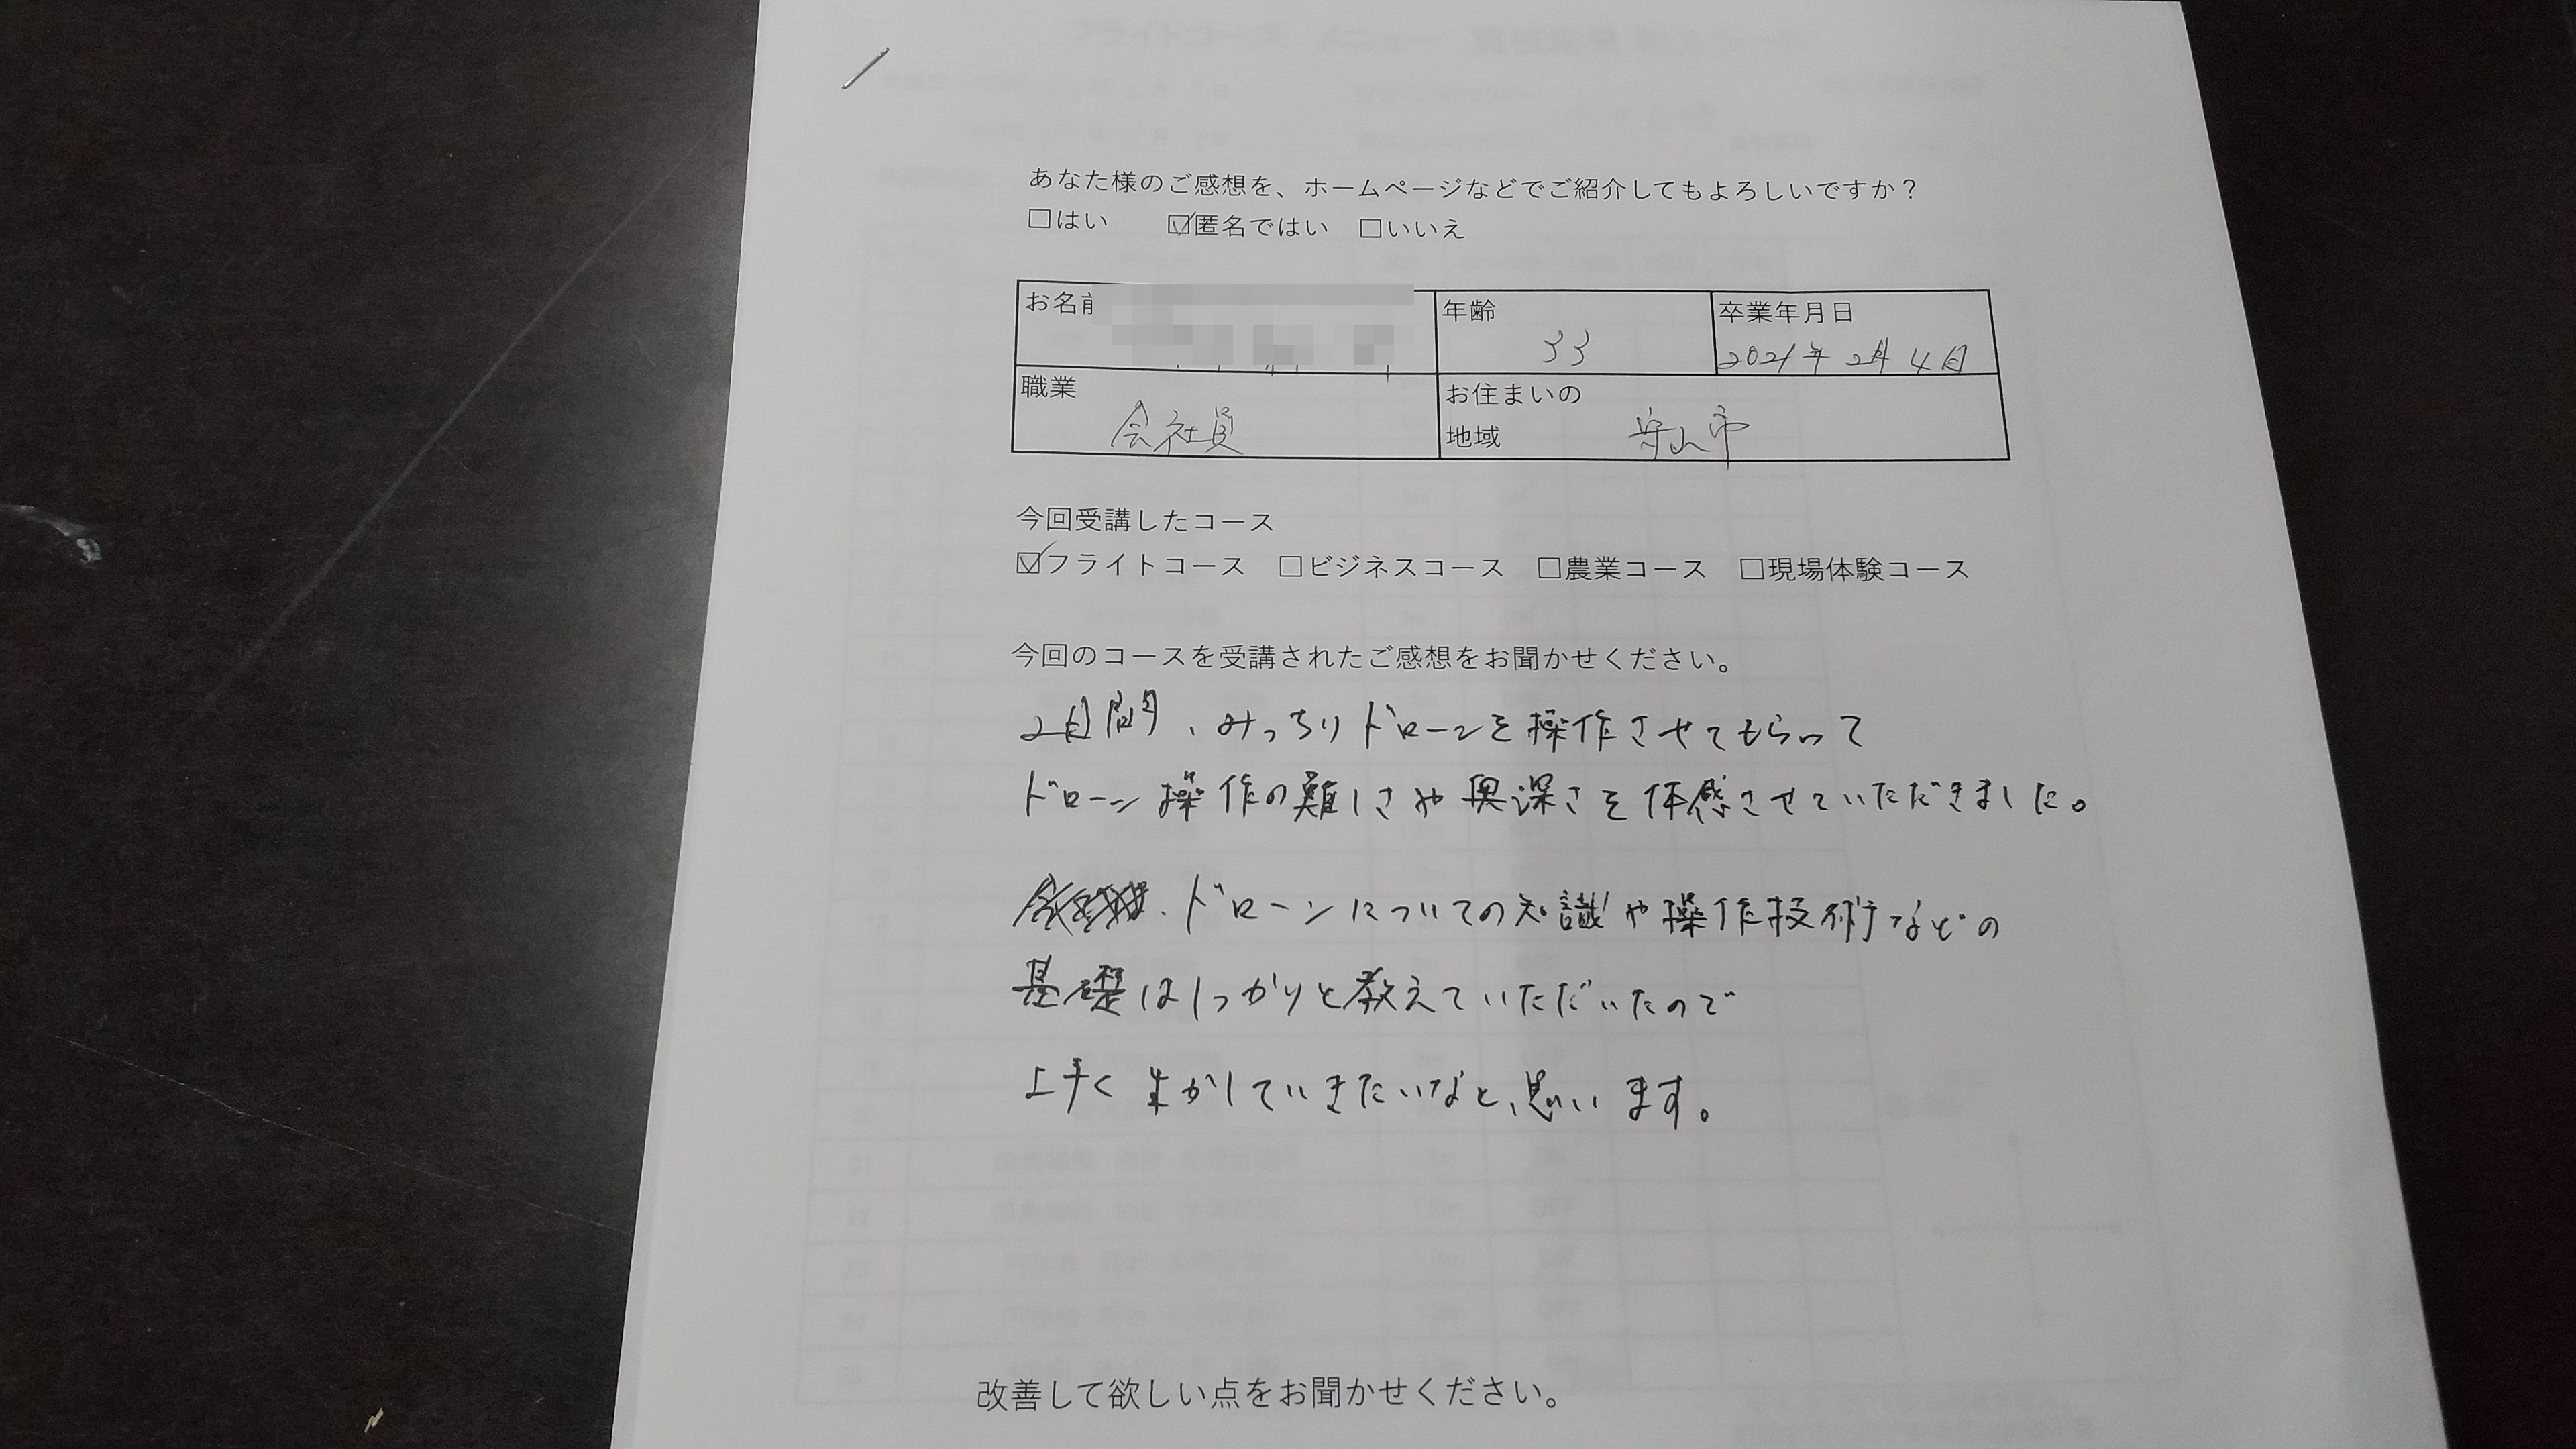 あなた様のご感想を、ホームページなどでご紹介してもよろしいですか？
□はい ☑匿名ではい □いいえ
お名前
年齢 33
卒業年月日 2021年2月4日
職業 会社員
お住まいの
地域 守山市
今回受講したコース
☑フライトコース □ビジネスコース □農業コース □現場体験コース
今回のコースを受講されたご感想をお聞かせください。
2日間、みっちりドローンを操作させてもらって
ドローン操作の難しさや奥深さを体感させていただきました。
ドローンについての知識や操作技術などの
基礎はしっかりと教えていただいたので
上手く生かしていきたいなと、思います。
改善して欲しい点をお聞かせください。